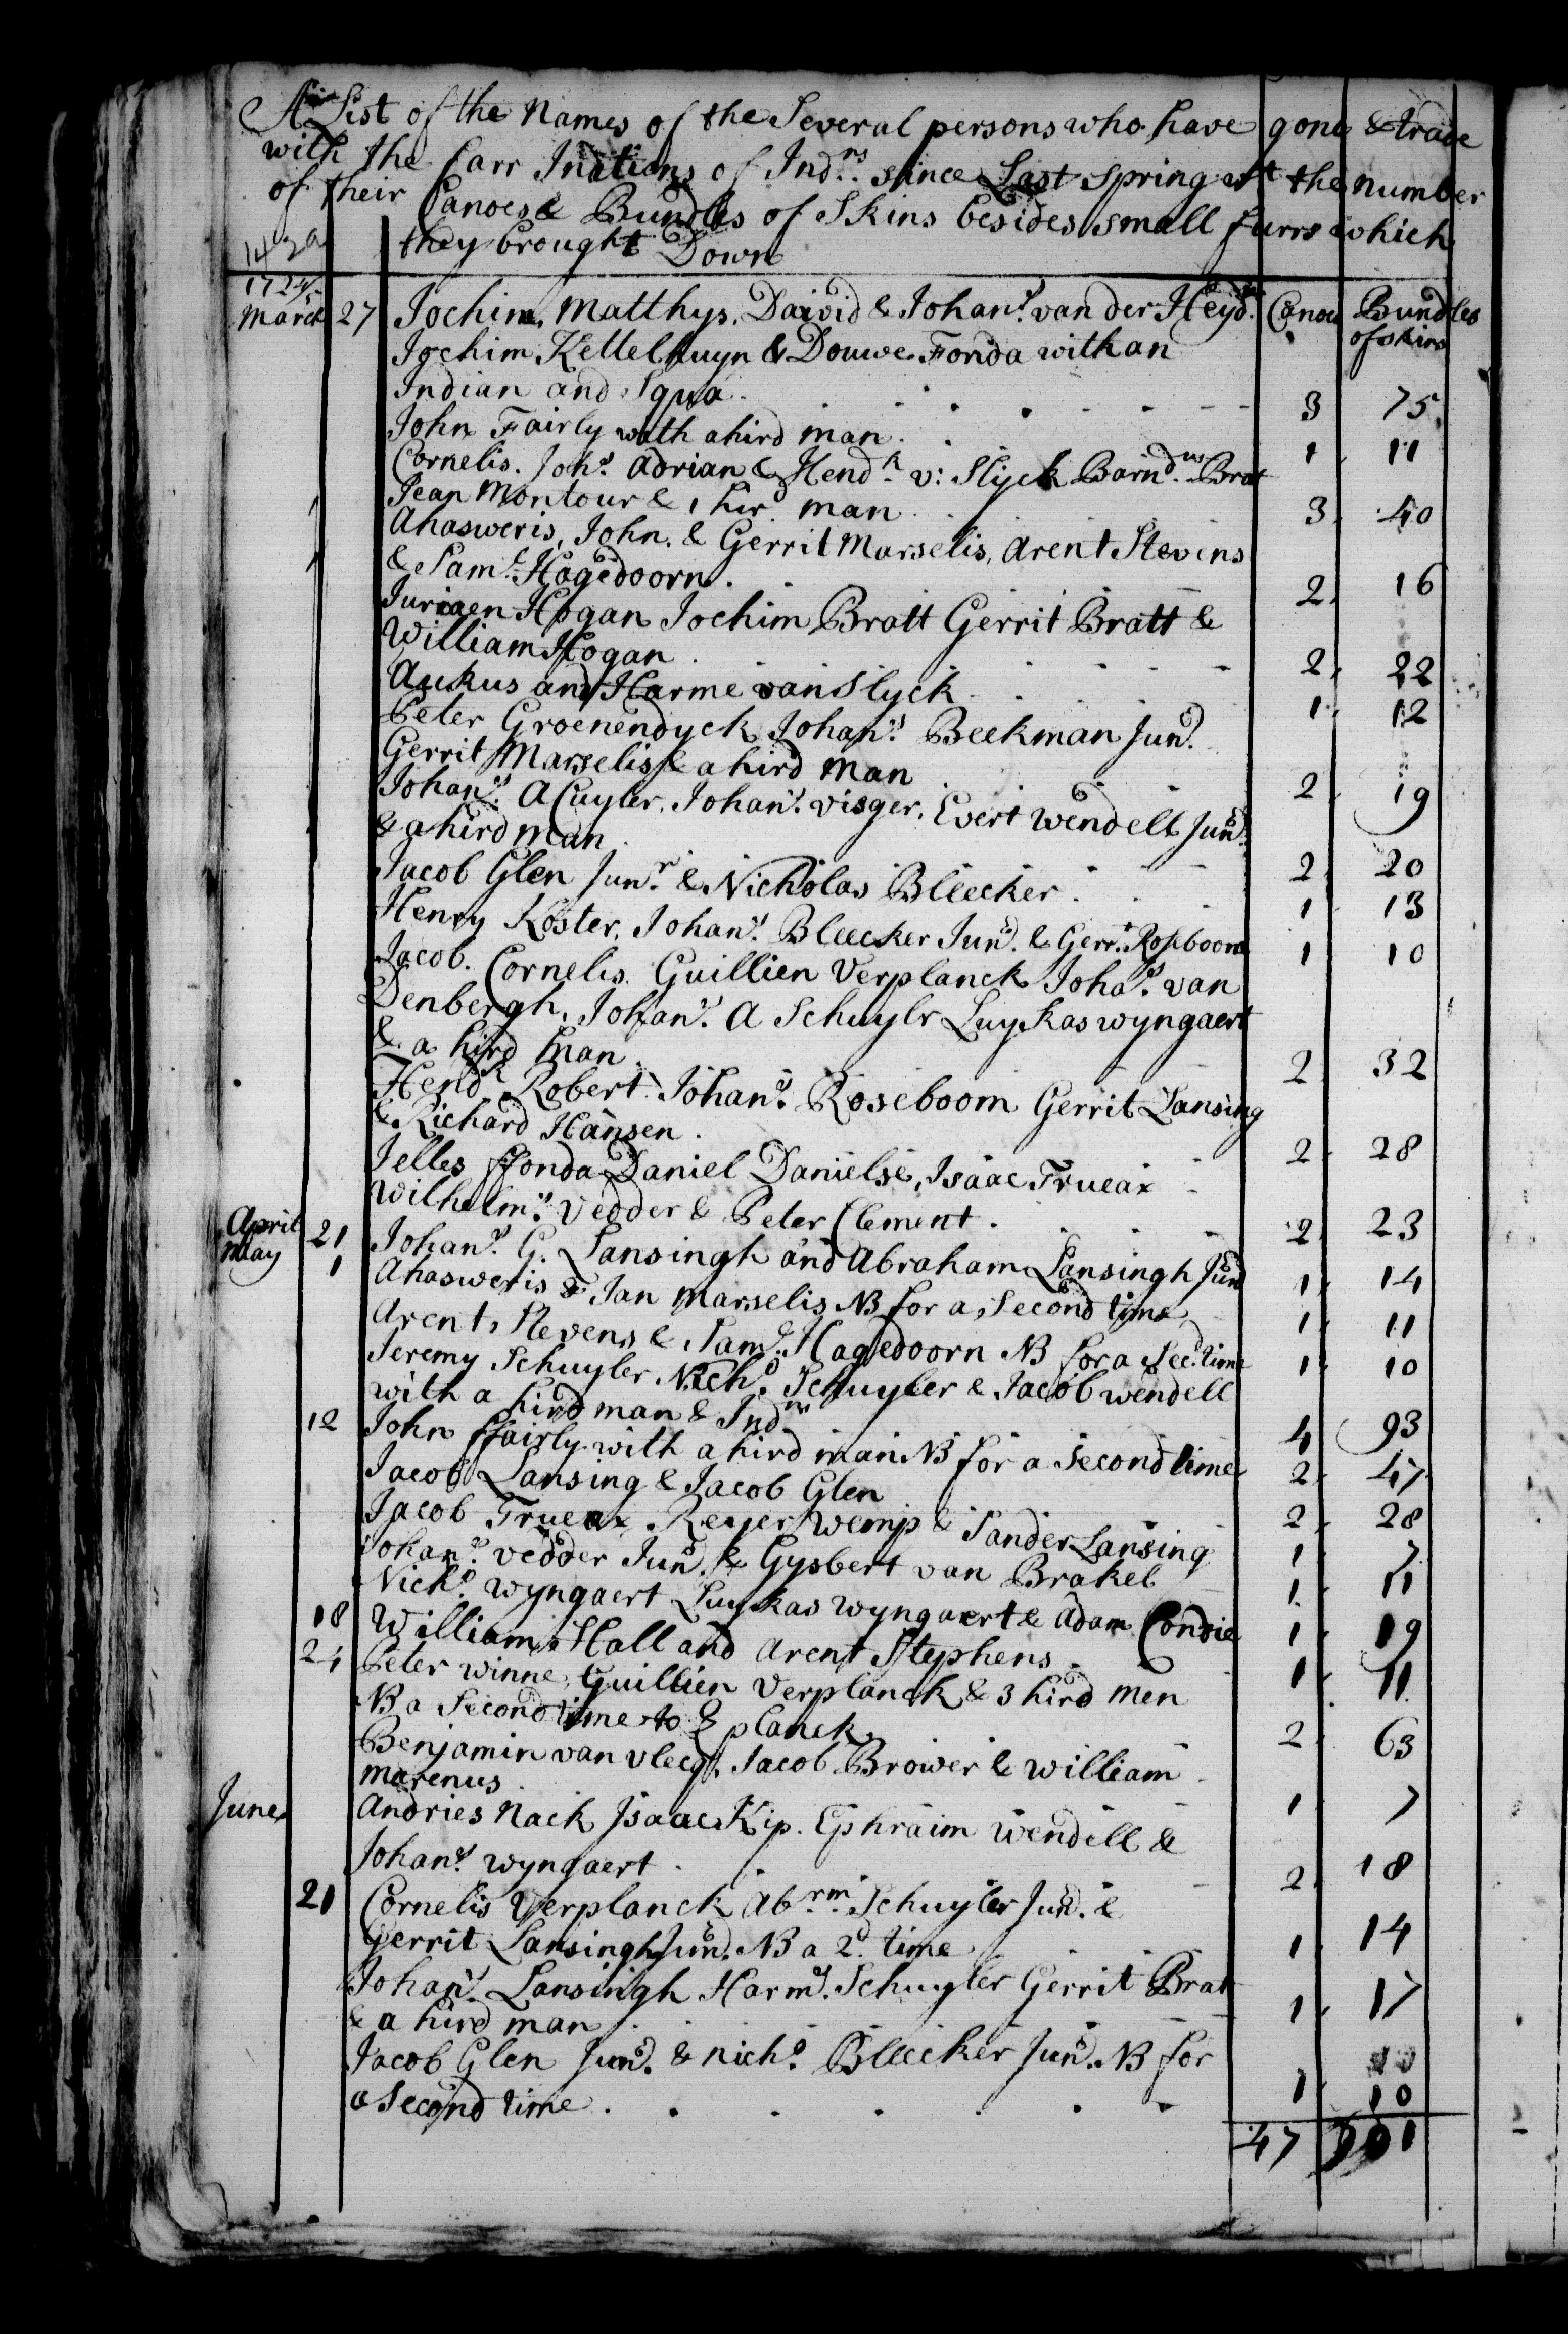 A List of the Names of the Several persons who have gone & trade
with the farr Inations of Indns. since Last spring wt the number
of their Canoes & Bundles of Skins besides small furrs which
they brought Down
142a
1724
March 27 Jochim, Matthys, David & Johans. van der Heyd. Canoes Bundles of skins
Jochim Kettelhuyn & Douwe Fonda with an
Indian and Squa 3 75
John Fairly with a hird man 1 11
Cornelis. Johs. Adrian & Hendk v: Slyck Barndus Brat
Jean Montour & 1 hird man 3 40
Ahasweris, John, & Gerrit Marselis, Arent Stevens
& Saml. Hagedoorn 2 16
Juriaen Hogan Jochim Bratt Gerrit Bratt &
William Hogan 2 22
Aukus and Harme van Slyck 1 12
Peter Groenendyck Johans. Beekman Jund.
Gerrit Marselis & a hird man 2 19
Johans. A Cuyler, Johans. Visger, Evert Wendell Jund.
& a hird man 2 20
Jacob Glen Junr. & Nicholas Bleecker 1 13
Henry Koster, Johans. Bleecker Jund. & Gerrt. Roseboom 1 10
Jacob. Cornelis. Guillien Verplanck Johas. van
Denbergh, Johans. A Schuylr Luykas wyngaert
& a hird man 2 32
Hendk Robert. Johans. Roseboom Gerrit Lansing
& Richard Hansen 2 28
Jelles ffonda Daniel Danielse, Isaac Trueax
Wilhelms. Vedder & Peter Clement 2 23
April 21 Johans. G. Lansingh and Abraham Lansingh Jund 1 14
May 1 Ahasweris & Jan Marselis NB for a Second time 1 11
Arent Stevens & Saml. Hagedoorn NB for a Secd. time 1 10
Jeremy Schuyler Nichs. Schuyler & Jacob Wendell
with a hird man & Indn 4 93
12 John ffairly with a hird man NB for a Second time 2 47
Jacob Lansing & Jacob Glen 2 28
Jacob Trueax Reyer Wemp & Sander Lansing 1 7
Johans. Vedder Jund. & Gysbert van Brakel 1 11
Nichs. Wyngaert Luykas Wyngaert & Adam Condie 1 19
18 William Hall and Arent Stephens 1 11
24 Peter Winne, Guillien Verplanck & 3 hird men
NB a Second time to planck 2 63
Benjamin van Vlecq, Jacob Brower & William
Marenus 1 7
June Andries Nack Isaac Kip. Ephraim Wendell &
Johans. Wyngaert 2 18
21 Cornelis Verplanck Abrm. Schuyler Jund. &
Gerrit Lansingh Jund. NB a 2d. time 1 14
Johans. Lansingh Harms. Schuyler Gerrit Brat
& a hird man 1 17
Jacob Glen Jund. & Nichs. Bleecker Jund. NB for
a Second time 1 10
47